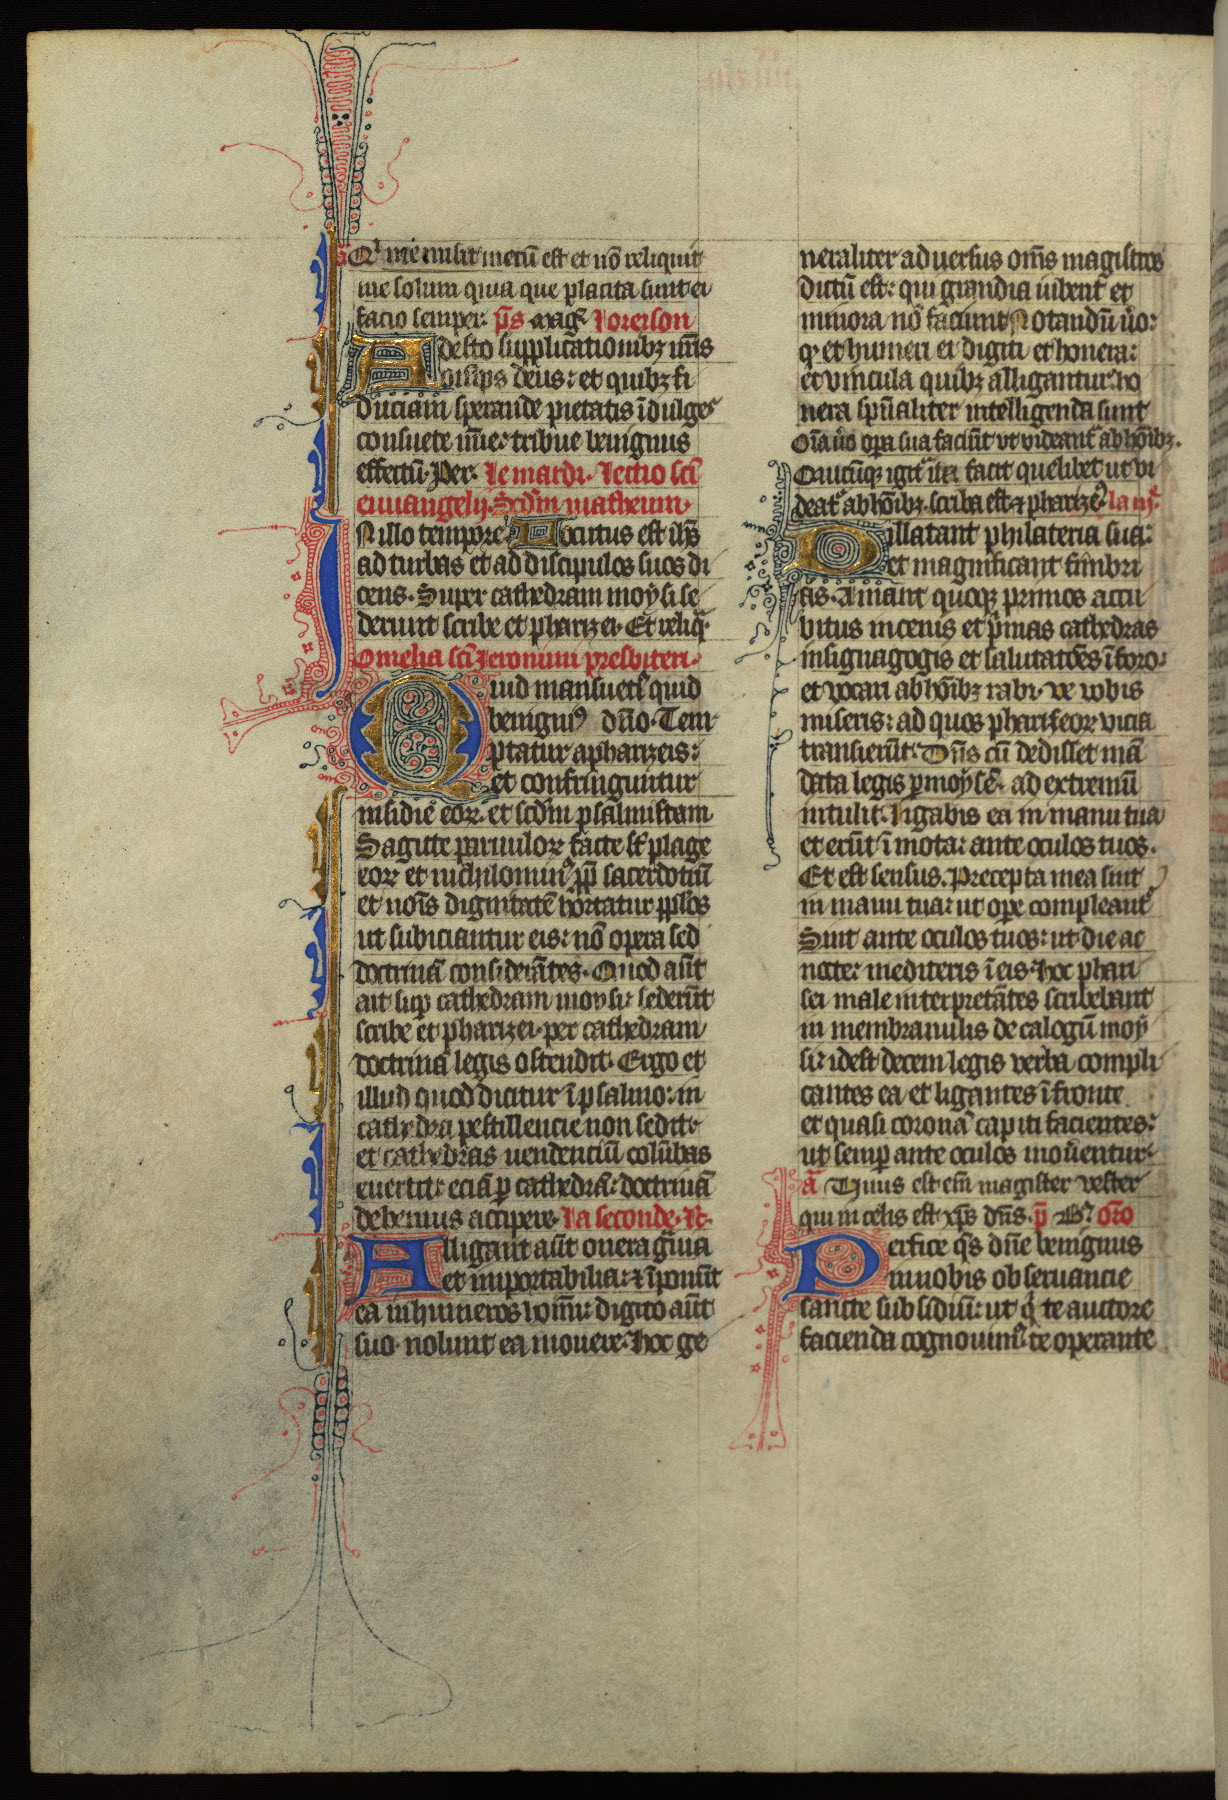 a Qui me misit mecū est et nō reliquit
me solum quia que placita sunt ei
facio semper. p̄s maḡ. Lorerson
Adesto supplicationibꝫ nr̄is
om̄ips deus: et quibꝫ fi
duciam sperande pietatis īdulges
consuete mīe: tribue benignus
effectū. Per. Le mardi. Lectio sc̄i
euuangelij. Scdm matheum.
In illo tempore. Locutus est ihs̄
ad turbas et ad discipulos suos di
cens. Super cathedram moysi se
derunt scribe et pharizei. Et reliq̄.
Omelia sc̄i Jeronimi presbiteri.
Quid mansuetꝰ quid
benignꝰ dn̄o. Tem
ptatur a pharizeis:
et confringuntur
insidie eoꝝ. et scdm psalmistam
Sagitte paruuloꝝ facte st̄ plage
eoꝝ et nichilominꝰ ꝓp̄ sacerdotiū
et nois̄ dignitatē hortatur ppl̄os
ut subiciantur eis: nō opera sed
doctrinā considerātes. Quod aūt
ait sup̄ cathedram moysi: sederūt
scribe et pharizei. per cathedram
doctrinā legis ostendit. Ergo et
illud quod dicitur ī psalmo: in
cathedra pestillencie non sedit.
et cathedras uendentiū colūbas
euertit: eciā ꝑ cathedrā: doctrinā
debemus accipere. La seconde. R.
Alligant aūt onera ḡuia
et importabilia: ⁊ īponūt
ea in humeros hom̄. digito aūt
suo nolunt ea mouere. Hoc ge
neraliter aduersus om̄s magistros
dictū est: qui grandia iubent et
minora nō faciunt Notandū u̇o:
qꝫ et humeri et digiti et honera:
et vincula quibꝫ alligantur ho
nera spūaliter intelligenda sunt
Oīa u̇o oꝑa sua faciūt vt videant᷑ ab hoībꝫ.
Quicūqꝫ igit᷑ ita facit quelibet ut vi
deat᷑ ab hoībꝫ. scriba est ⁊ pharizeꝰ. la iij.
Dillatant philateria sua:
et magnificant fimbri
as. Amant quoqꝫ primos accu
bitus in cenis et p̄mas cathedras
in signagogis et salutatōes ī foro:
et vocari ab hoībꝫ rabi. Ve vobis
miseris: ad quos phariseoꝝ vicia
transierūt. Dn̄s cū dedisset mā
data legis ꝑ moysē. ad extremū
intulit. Ligabis ea in manu tua
et erūt ī mota: ante oculos tuos.
Et est sensus. Precepta mea sint
in manu tua: ut oꝑe compleant᷑
Sint ante oculos tuos: ut die ac
nocte: mediteris ī eis. Hoc phari
sei male interpretātes scribebant
in membranulis decalogū moy
si: id est decem legis verba compli
cantes ea et ligantes ī fronte
et quasi coronā capiti facientes:
ut semꝑ ante oculos mouerentur.
a Unus est em̄ magister vester
qui in celis est xp̄s dn̄s. p̄ Bn̄. oro
Perfice q̄s dn̄e benignus
in nobis obseruancie
sancte subsidiū: ut q̄ te auctore
facienda cognouimꝰ. te operante